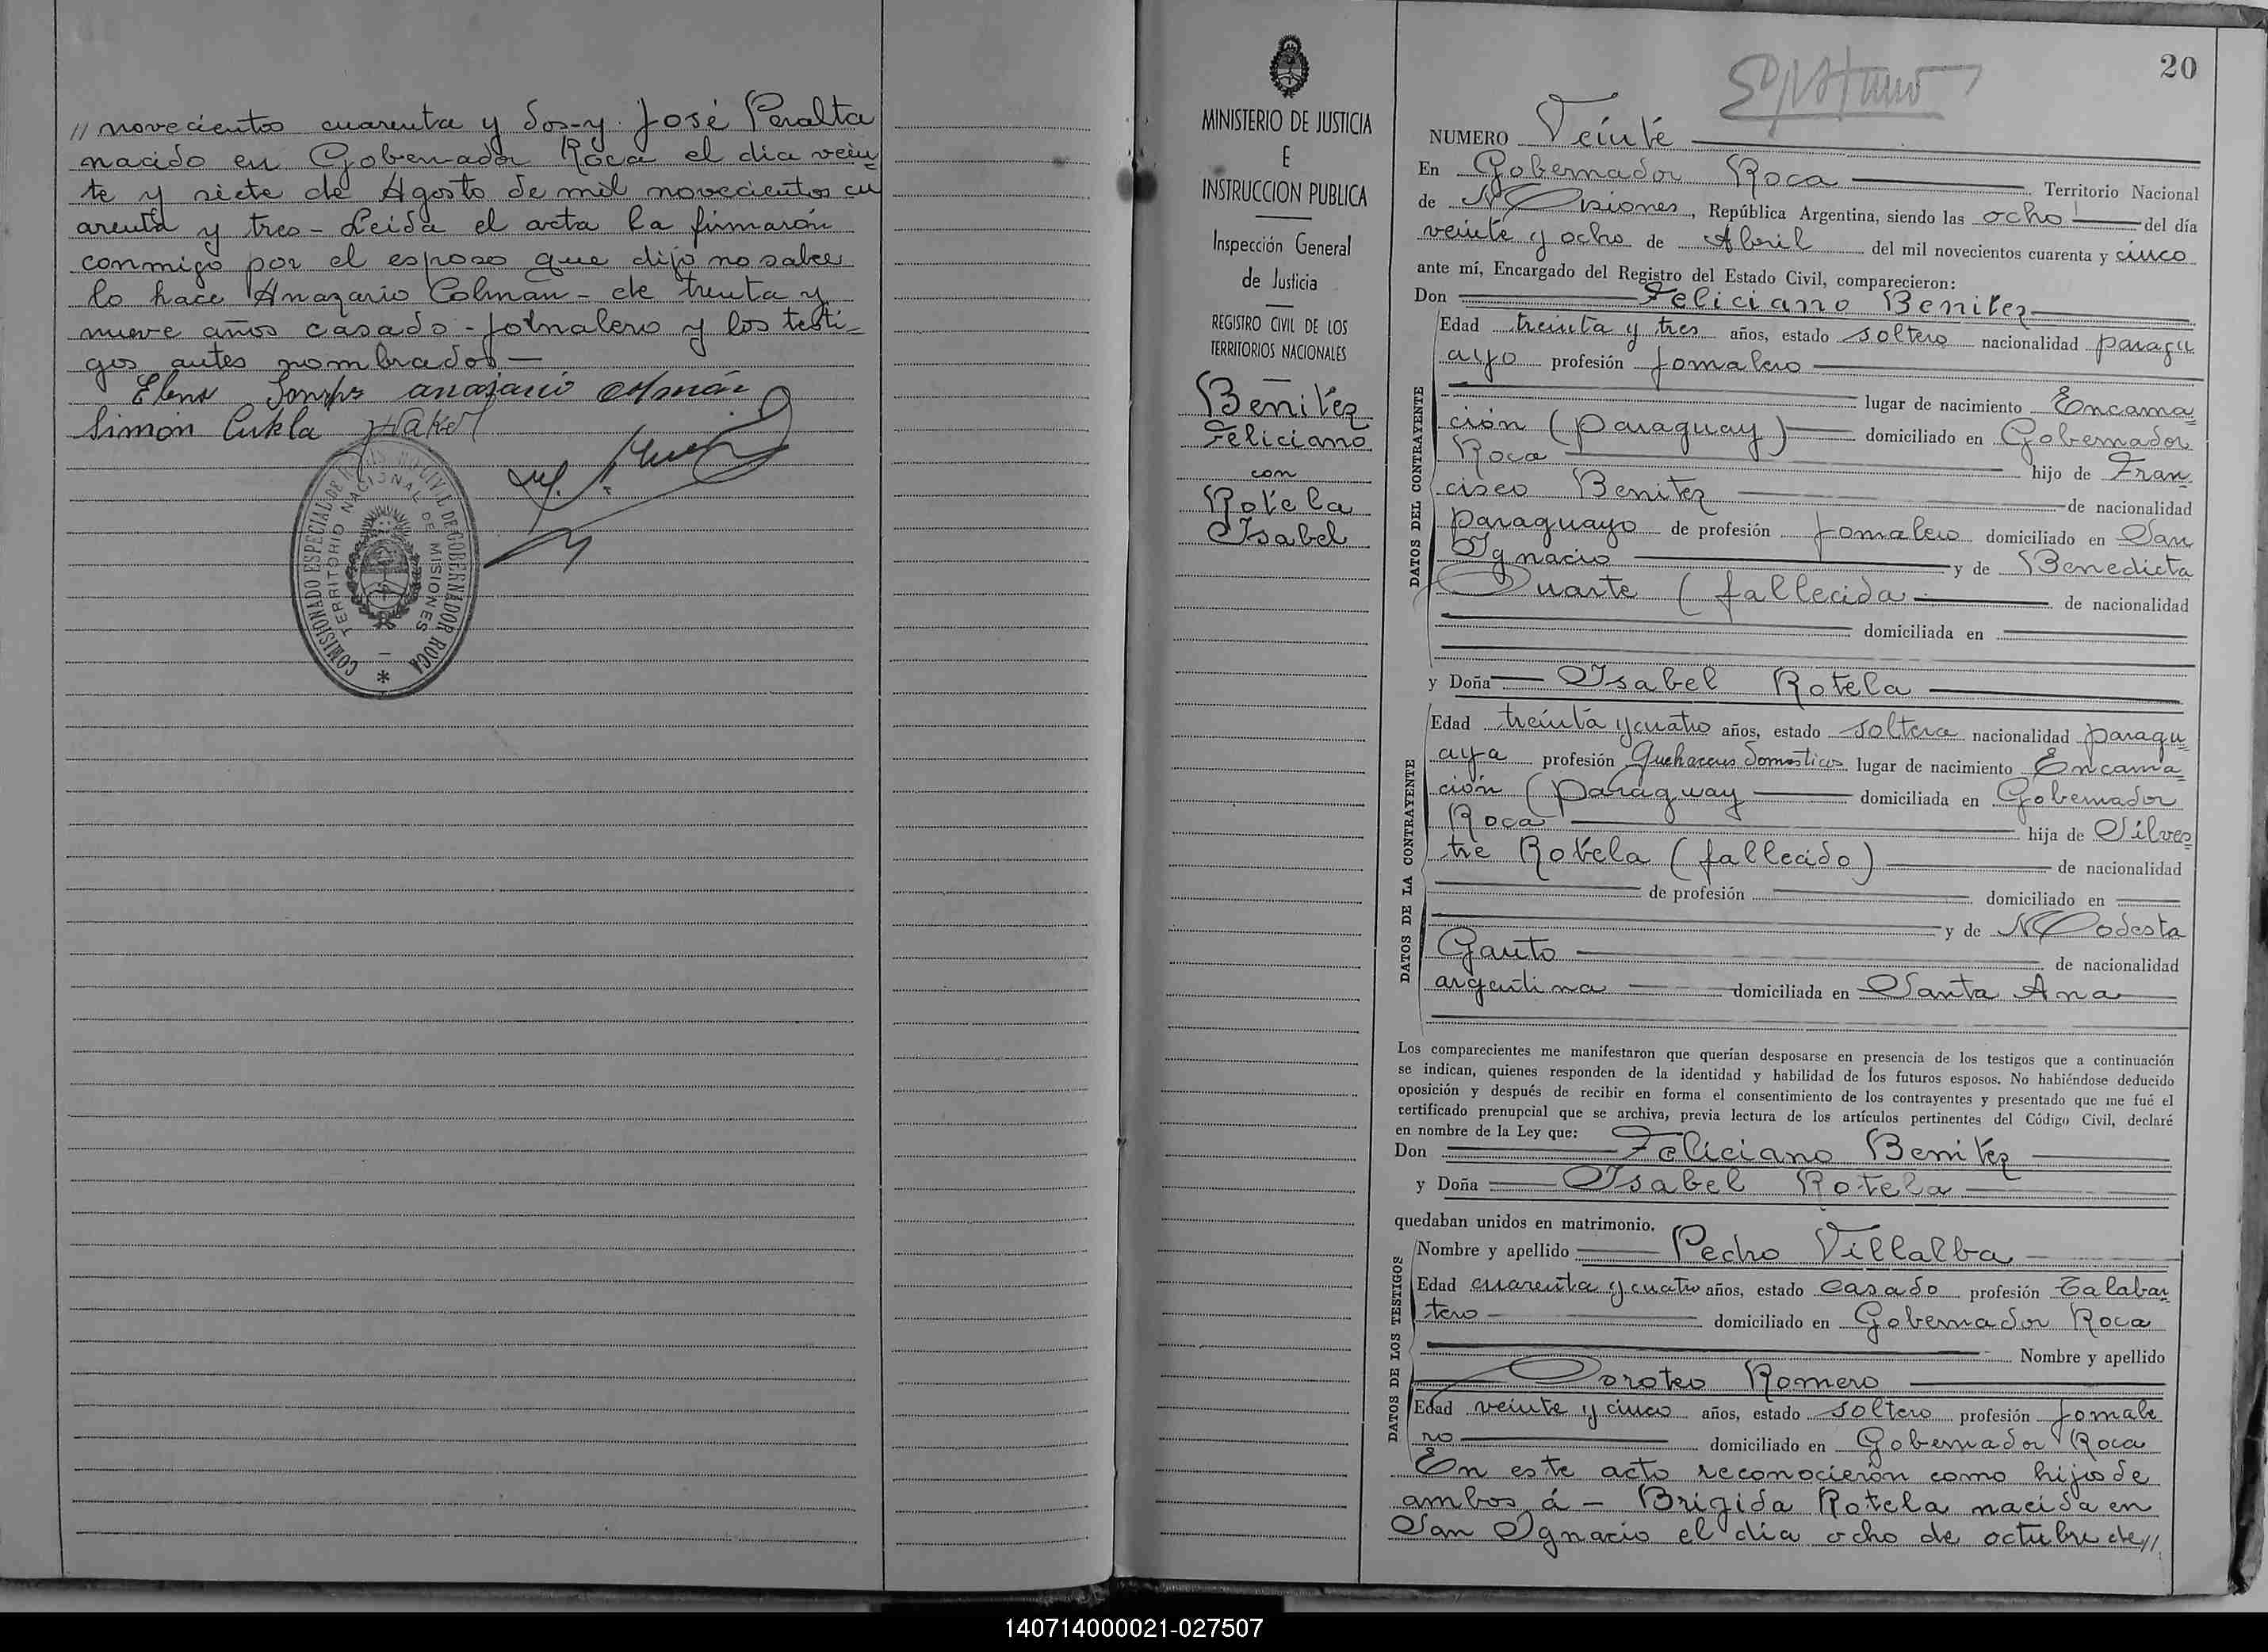 // novecientos cuarenta y dos - y José Peralta
nacido en Gobernador Roca el dia vein
te y siete de Agosto de mil novecientos cu
arenta y tres - Leida el acta la firmarón
conmigo por el esposo que dijo no saber
lo hace Anazario Colman - de treinta y
nueve años casado - jornalero y los testi-
gos antes nombrados —
Simón Cukla
COMISIONADO ESPECIAL DE GOBERNADOR ROCA
TERRITORIO NACIONAL DE MISIONES
20
MINISTERIO DE JUSTICIA
E
INSTRUCCION PUBLICA
Inspección General
de Justicia
REGISTRO CIVIL DE LOS
TERRITORIOS NACIONALES
Benitez
Feliciano
con
Rotela
Isabel
NUMERO Veinte
En Gobernador Roca Territorio Nacional
de Misiones, República Argentina, siendo las ocho del día
veinte y ocho de Abril del mil novecientos cuarenta y cinco
ante mí, Encargado del Registro del Estado Civil, comparecieron:
Don Feliciano Benitez
DATOS DEL CONTRAYENTE
Edad treinta y tres años, estado soltero nacionalidad paragu
ayo profesión Jornalero
lugar de nacimiento Encarna
ción (Paraguay) domiciliado en Gobernador
Roca hijo de Fran
cisco Benitez de nacionalidad
paraguayo de profesión Jornalero domiciliado en San
Ignacio y de Benedicta
Duarte (fallecida de nacionalidad
domiciliada en
y Doña Isabel Rotela
DATOS DE LA CONTRAYENTE
Edad treinta y cuatro años, estado soltera nacionalidad paragu
aya profesión Quehaceres domésticos lugar de nacimiento Encarna
ción (Paraguay domiciliada en Gobernador
Roca hija de Silves
tre Rotela (fallecido) de nacionalidad
de profesión domiciliado en
y de Modesta
Gauto de nacionalidad
argentina domiciliada en Santa Ana
Los comparecientes me manifestaron que querían desposarse en presencia de los testigos que a continuación
se indican, quienes responden de la identidad y habilidad de los futuros esposos. No habiéndose deducido
oposición y después de recibir en forma el consentimiento de los contrayentes y presentado que me fué el
certificado prenupcial que se archiva, previa lectura de los artículos pertinentes del Código Civil, declaré
en nombre de la Ley que:
Don Feliciano Benitez
y Doña Isabel Rotela
quedaban unidos en matrimonio.
DATOS DE LOS TESTIGOS
Nombre y apellido Pedro Villalba
Edad cuarenta y cuatro años, estado casado profesión Talabar
tero domiciliado en Gobernador Roca
Nombre y apellido
Doroteo Romero
Edad veinte y cinco años, estado soltero profesión Jornale
ro domiciliado en Gobernador Roca
En este acto reconocierón como hijos de
ambos á - Brigida Rotela nacida en
San Ignacio el dia ocho de octubre de //
140714000021-027507